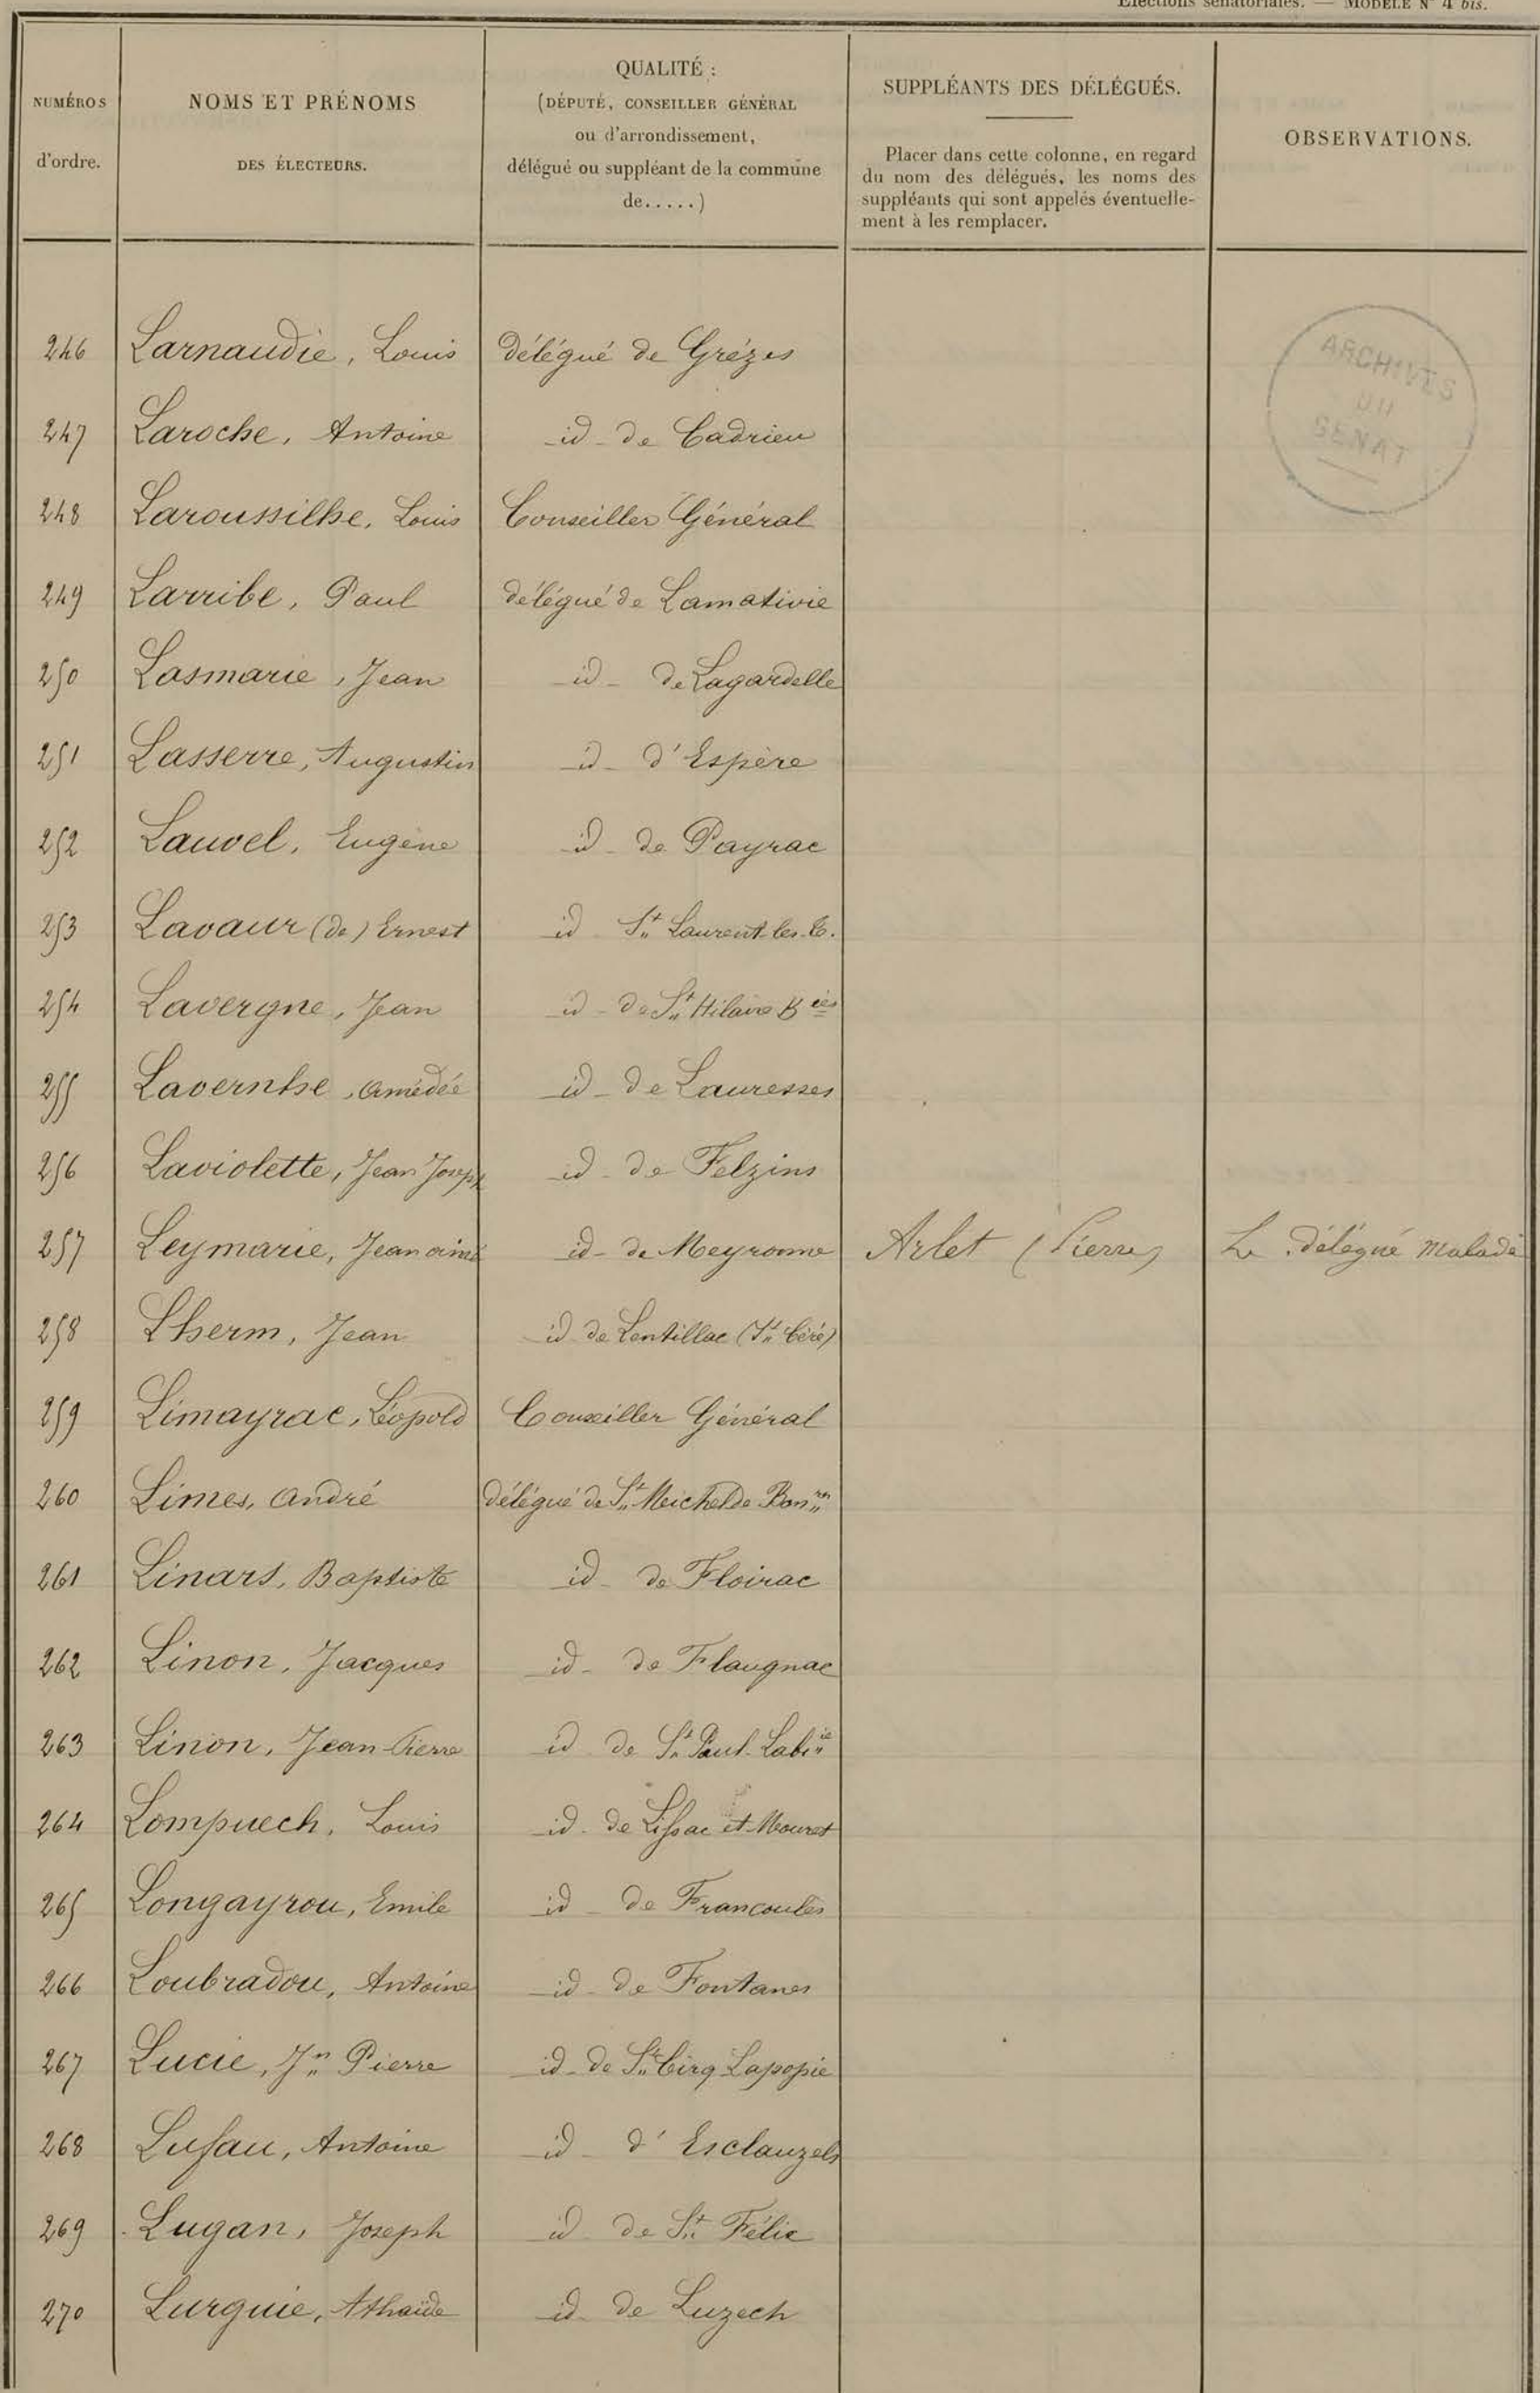 Élections sénatoriales. — MODÈLE N° 4 bis.
NUMÉROS d'ordre.
NOMS ET PRÉNOMS DES ÉLECTEURS.
QUALITÉ :
(DÉPUTÉ, CONSEILLER GÉNÉRAL
ou d'arrondissement,
délégué ou suppléant de la commune
de.....)
SUPPLÉANTS DES DÉLÉGUÉS.
Placer dans cette colonne, en regard
du nom des délégués, les noms des
suppléants qui sont appelés éventuelle-
ment à les remplacer.
OBSERVATIONS.
ARCHIVES
DU
SENAT
246 Larnaudie, Louis délégué de Grézes
247 Laroche, Antoine id - de Cadrieu
248 Laroussilhe, Louis Conseiller Général
249 Larribe, Paul délégué de Lamativie
250 Lasmarie, Jean id - de Lagardelle
251 Lasserre, Augustin id - d'Espère
252 Lauvel, Eugène id - de Payrac
253 Lavaur (de) Ernest id St Laurent-les-T.
254 Lavergne, Jean id - de St Hilaire Bies
255 Lavernhe, Amédée id - de Lauresses
256 Laviolette, Jean Joseph id - de Felzins
257 Leymarie, Jean aimé id - de Meyronne Arlet (Pierre) Le délégué malade
258 Lherm, Jean id de Lentillac (St Céré)
259 Limayrac, Léopold Conseiller Général
260 Limes, André délégué de St Meichel de Bannres
261 Linars, Baptiste id - de Floirac
262 Linon, Jacques id - de Flaugnac
263 Linon, Jean-Pierre id de St Paul-Labie
264 Lompuech, Louis id - de Lissac et Mouret
265 Longayrou, Emile id - de Francoulès
266 Loubradou, Antoine id - de Fontanes
267 Lucie, Jn Pierre id - de St Cirq Lapopie
268 Lufau, Antoine id - d'Esclauzels
269 Lugan, Joseph id - de St Félix
270 Lurguie, Athaïde id - de Luzech